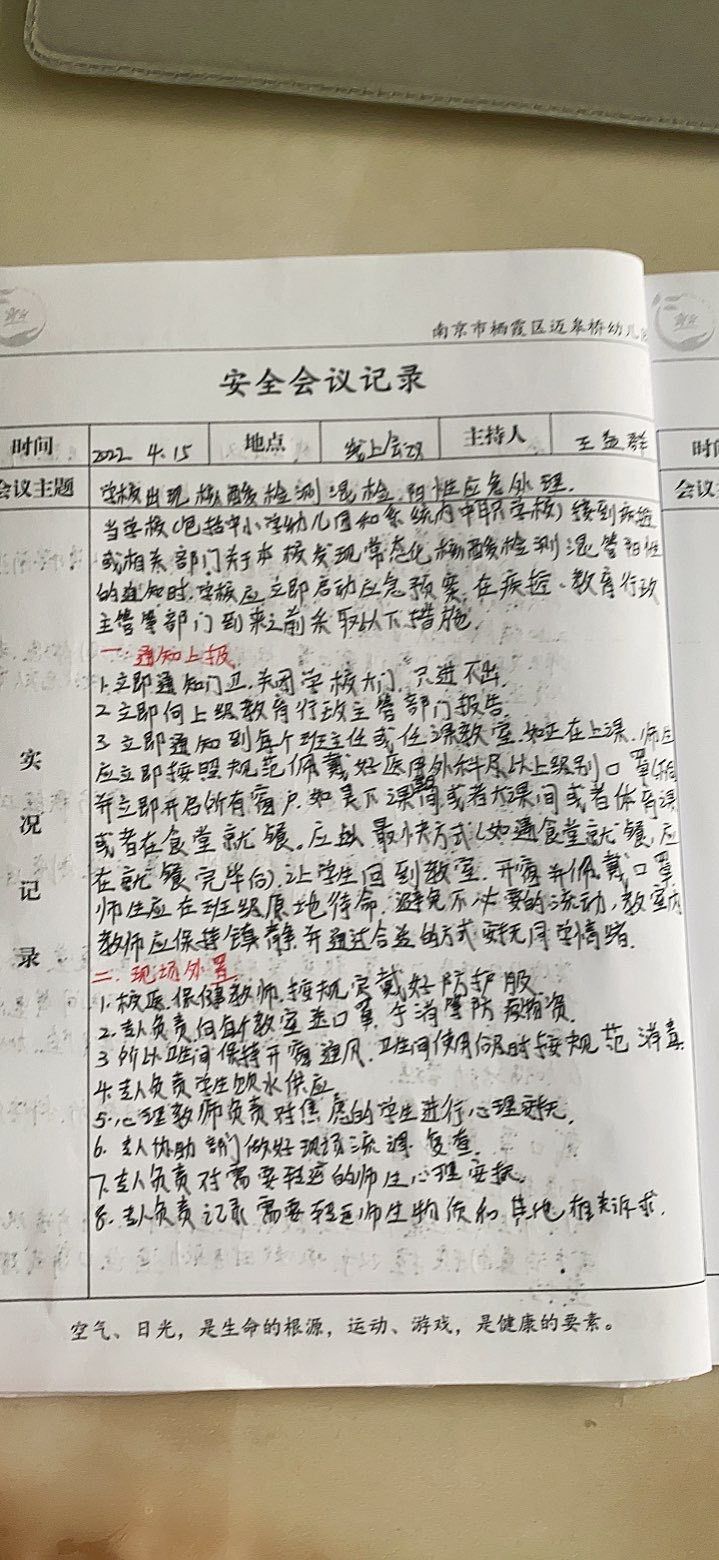 南京市栖霞区迈皋桥幼儿园
安全会议记录
时间 2022 4.15 地点 线上会议 主持人 王益群
会议主题 学校出现核酸检测混检阳性应急处理.
实况记录
当学校(包括中小学幼儿园和系统内中职学校)接到疾控
或相关部门关于本校发现常态化核酸检测混管阳性
的通知时,学校应立即启动应急预案,在疾控、教育行政
主管等部门到来之前采取以下措施.
一.通知上报.
1.立即通知门卫.关闭学校大门,只进不出.
2.立即向上级教育行政主管部门报告.
3.立即通知到每个班主任或任课教室.如正在上课,师生
应立即按照规范佩戴好医用外科及以上级别口罩
并立即开启所有窗户.如是下课期间或者大课间或者体育课
或者在食堂就餐.应以最快方式(如遇食堂就餐,应
在就餐完毕后).让学生回到教室.开窗并佩戴口罩
师生应在班级原地待命.避免不必要的流动,教室内
教师应保持镇静.并通过合益的方式安抚同学情绪.
二.现场处置
1.校医.保健教师.按规定戴好防护服
2.专人负责向每个教室送口罩.手消等防疫物资.
3.所以卫生间保持开窗通风.卫生间使用后及时按规范消毒
4.专人负责学生饮水供应
5.心理教师负责对焦虑的学生进行心理安抚.
6.专人协助部门做好现场流调.复查.
7.专人负责对需要转运的师生心理安抚.
8.专人负责记录需要转运师生物质和其他相关诉求.
空气、日光，是生命的根源，运动、游戏，是健康的要素。